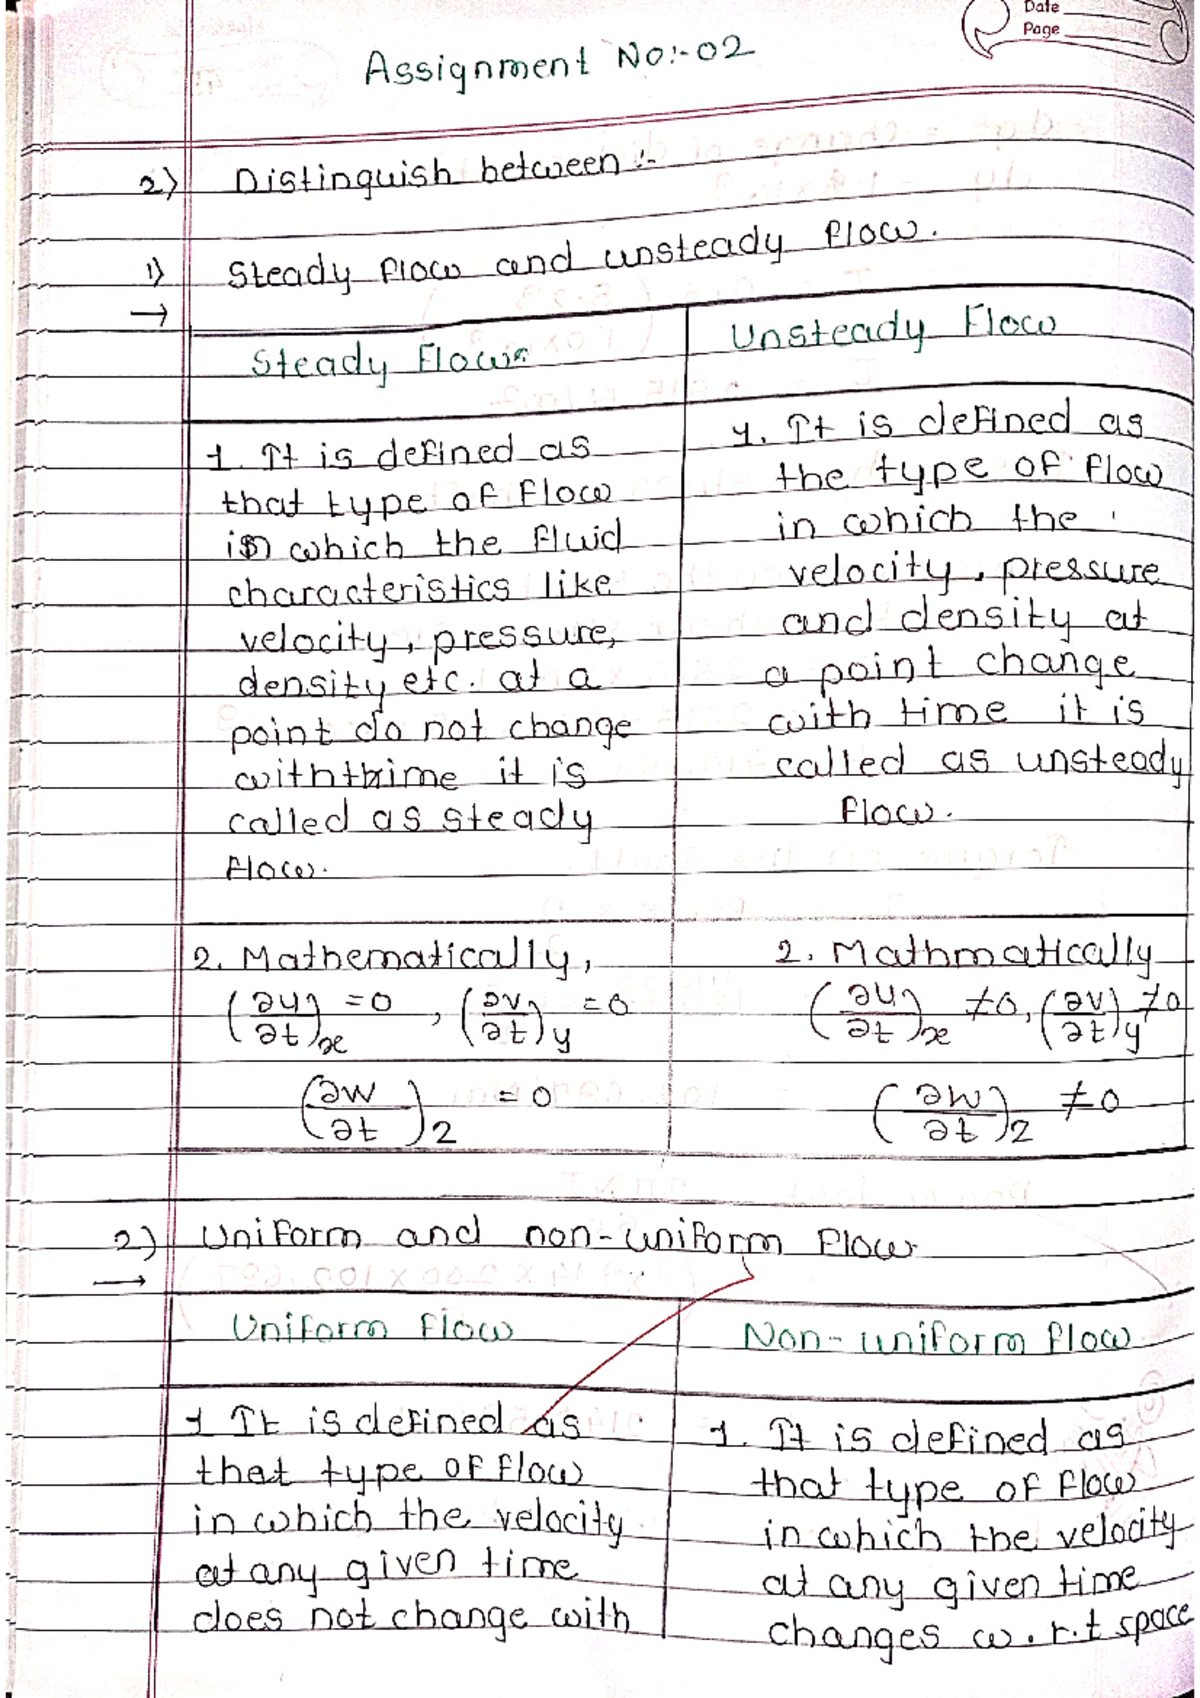 Date
Page
Assignment No:-02
2) Distinguish between :-
1) Steady flow and unsteady flow.
→
Steady Flow
1. It is defined as
that type of flow
in which the fluid
characteristics like
velocity, pressure,
density etc. at a
point do not change
with time it is
called as steady
flow.
2. Mathematically,
(∂u/∂t)x = 0 , (∂v/∂t)y = 0
(∂w/∂t)2 = 0
Unsteady Flow
1. It is defined as
the type of flow
in which the
velocity, pressure
and density at
a point change
with time it is
called as unsteady
flow.
2. Mathmatically
(∂u/∂t)x ≠0, (∂v/∂t)y ≠0
(∂w/∂t)2 ≠0
2) Uniform and non-uniform flow.
→
Uniform flow
1 It is defined as
that type of flow
in which the velocity
at any given time
does not change with
Non-uniform flow
1. It is defined as
that type of flow
in which the velocity
at any given time
changes w.r.t space